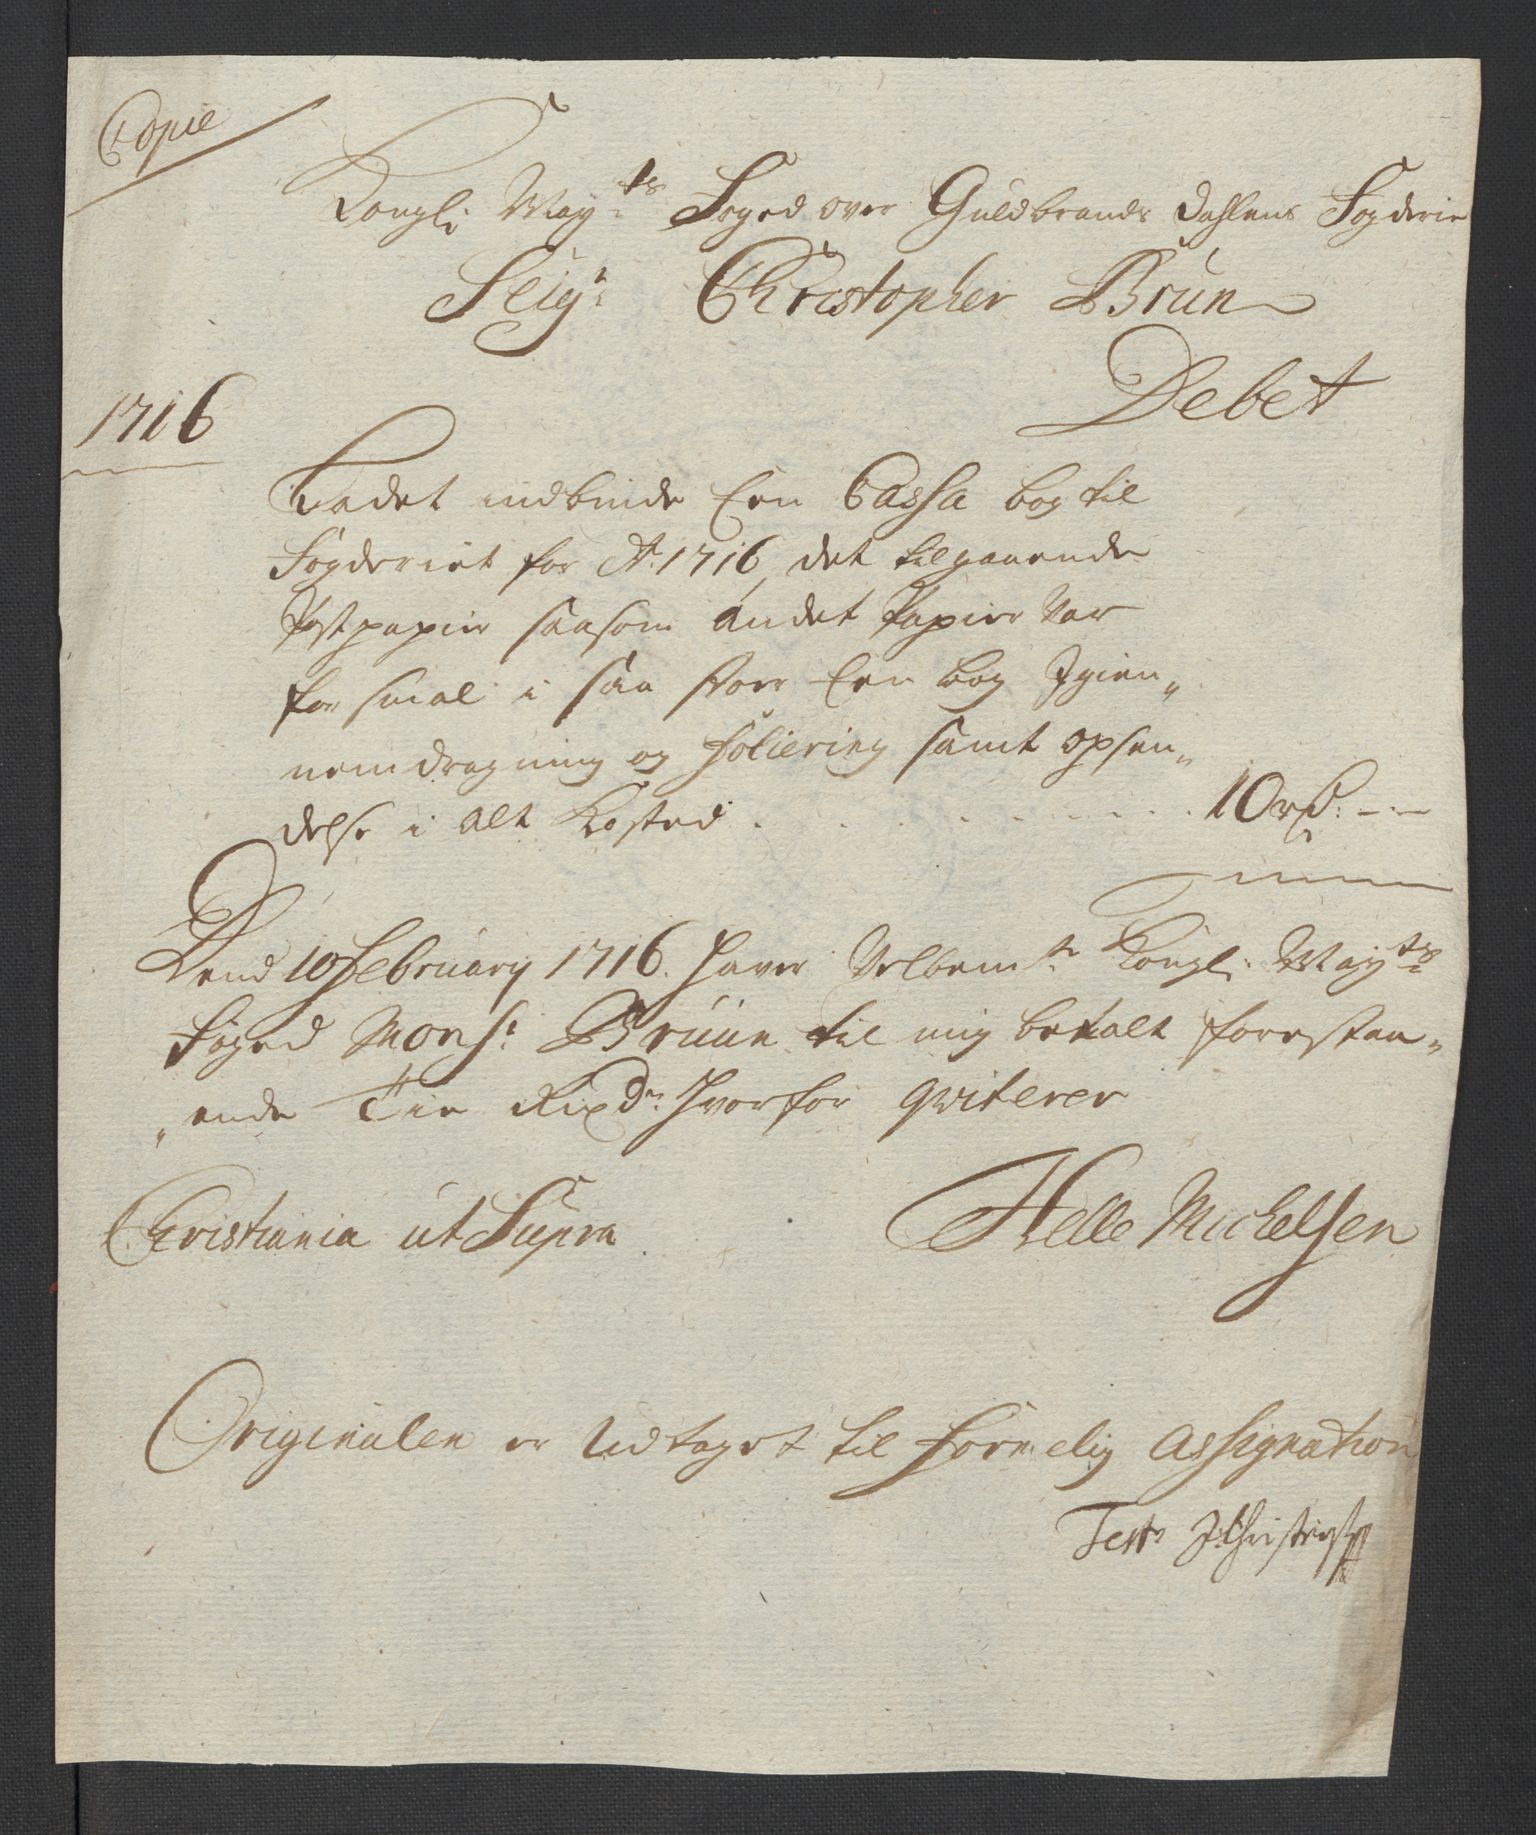 Copie
Kongl: May:ts Foged over Guldbrands Dahlens Fogderie
Seig:r Christopher Brun
Debet
1716
Ladet indbinde Een Cassa bog til
Fogderiet for A:o 1716, det tilgaaende
Postpapiir saasom andet Papiir var
for smal i saa stoer Een bog Igien„
nemdragning og foliering samt opsen„
delse i alt kosted . . . . . . . . . 10 rd: - -
Dend 10 February 1716. Haver Velbem:te Kongl: May:ts
Foged Mons:r Bruun til mig betalt forestaa„
„ende Tie Rixd:r hvorfor qviterer
Christiania ut Supra. Helle Michelsen
Originalen er udtaget til fornelig Assignation
Test: